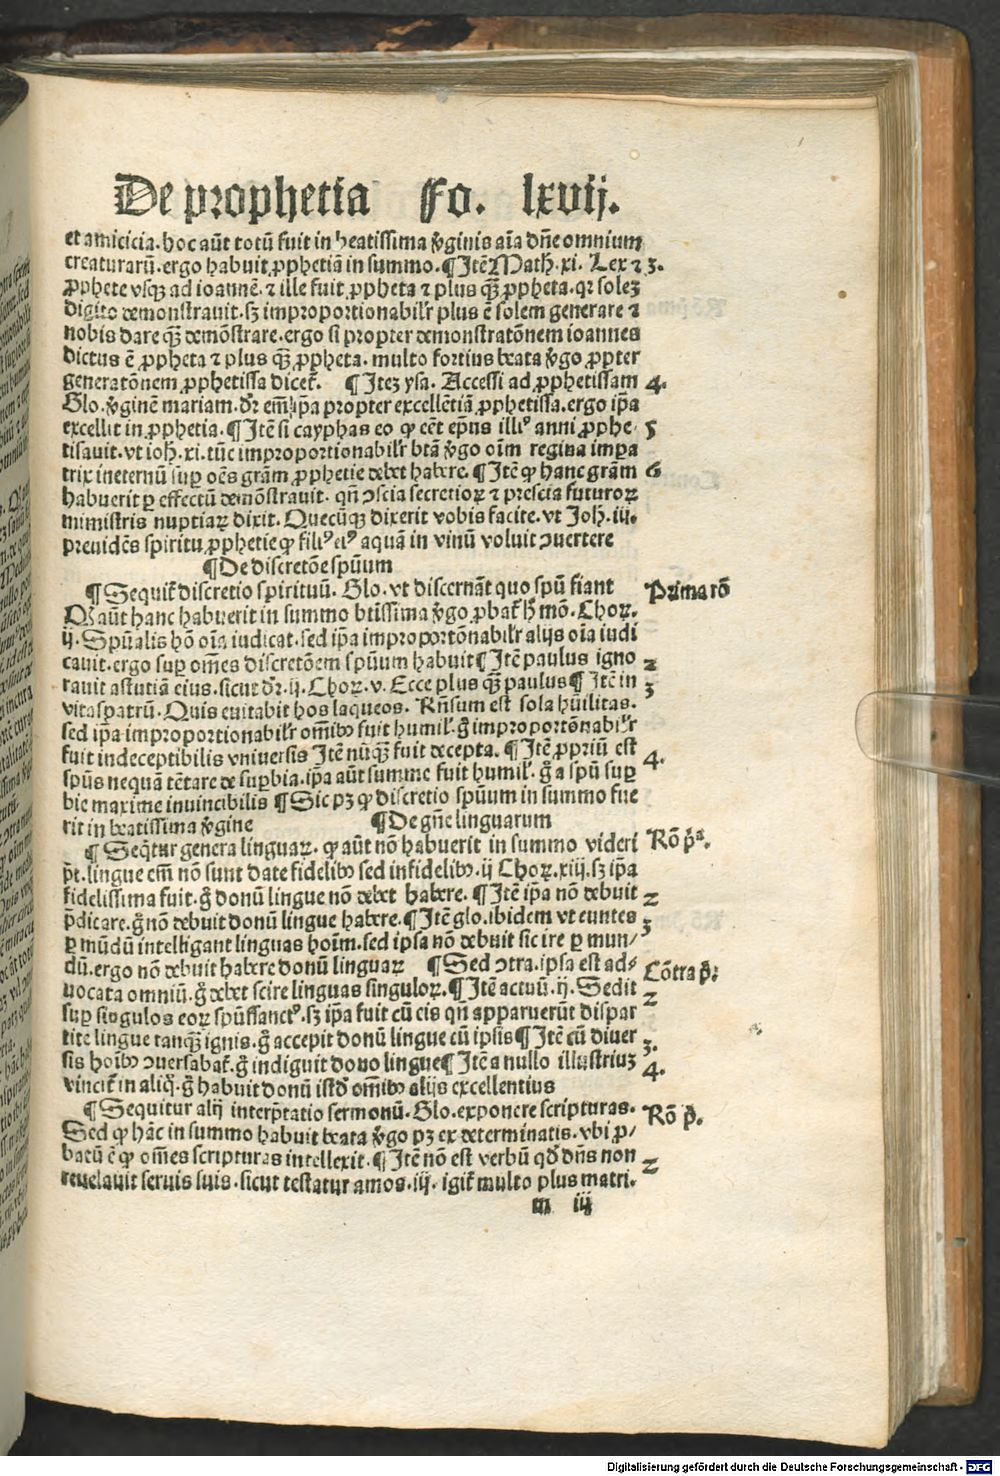 De prophetia Fo. lxvij.
et amicicia. hoc aūt totū fuit in beatissima v̄ginis aīa dn̄e omnium
creaturarū. ergo habuit ꝓphetiā in summo. ¶ Itē Math. xi. Lex ⁊ 3.
ꝓphete vsqꝫ ad ioannē. ⁊ ille fuit ꝓpheta ⁊ plus qꝫ ꝓpheta. qꝛ soleꝫ
digito demonstrauit. sꝫ improportionabilr̄ plus ē solem generare ⁊
nobis dare qꝫ demōstrare. ergo si propter demonstratōnem ioannes
dictus ē ꝓpheta ⁊ plus qꝫ ꝓpheta. multo fortius beata v̄go ꝓpter
generatōnem ꝓphetissa dicet᷑. ¶ Iteꝫ ysa. Accessi ad ꝓphetissam 4.
Glo. v̄ginē mariam. dr̄ em̄ ip̄a propter excellētiā ꝓphetissa. ergo ip̄a
excellit in ꝓphetia. ¶ Itē si cayphas eo ꝙ eēt ep̄ns illiꝰ anni ꝓphe⸗ 5
tisauit. vt ioh̄. xi. tūc improportionabilr̄ btā v̄go oīm regina impa
trix ineternū suꝑ oēs grām ꝓphetie debet habere. ¶ Itē ꝙ hanc grām 6
habuerit ꝑ effectū demōstrauit. qn̄ ↄscia secretioꝝ ⁊ prescia futuroꝝ
mimistris nuptiaꝝ dixit. Quecūqꝫ dixerit vobis facite. vt Joh̄. iij.
preuidēs spiritu ꝓphetie ꝙ filiꝰ eiꝰ aquā in vinū voluit ↄuertere
¶ De discretōe spūum
¶ Sequit᷑ discretio spirituū. Glo. vt discernāt quo spū fiant Prima rō
Qꝙ aūt hanc habuerit in summo btissima v̄go ꝓbat᷑ h̄ mō. Choꝝ.
ij. Spūalis hō oīa iudicat. sed ip̄a improportōnabilr̄ alijs oīa iudi
cauit. ergo suꝑ om̄es discretōem spūum habuit ¶ Itē paulus igno 2
rauit astutiā eius. sicut dr̄. ij. Choꝝ. v. Ecce plus qꝫ paulus ¶ Itē in 3
vitaspatrū. Quis euitabit hos laqueos. Rn̄sum est sola hūilitas.
sed ip̄a improportionabilr̄ om̄ibꝰ fuit humil᷑. g̊ improportōnabilr̄
fuit indeceptibilis vniuersis Itē nūqꝫ fuit decepta. ¶ Itē ꝓpriū est 4.
spūs nequā tētare de suꝑbia. ip̄a aūt summe fuit humil᷑. g̊ a spū suꝑ
bie maxime inuincibilis ¶ Sic pꝫ ꝙ discretio spūum in summo fue
rit in beatissima v̄gine ¶ De gn̄e linguarum
¶ Seq̄tur genera linguaꝝ. ꝙ aūt nō habuerit in summo videri Rō pᵃ.
p̄t. lingue em̄ nō sunt date fidelibꝰ sed infidelibꝰ. ij Choꝝ. xiij. sꝫ ip̄a
fidelissima fuit. g̊ donū lingue nō debet habere. ¶ Itē ip̄a nō debuit 2
p̄dicare. g̊ nō debuit donū lingue habere. ¶ Itē glo. ibidem vt euntes 3
ꝑ mūdū intelligant linguas hoīm. sed ipsa nō debuit sic ire ꝑ mun/
dū. ergo nō debuit habere donū linguaꝝ ¶ Sed ↄtra. ipsa est ad⸗ Cōtra p̄.
uocata omniū. g̊ debet scire linguas singuloꝝ. ¶ Itē actuū. ij. Sedit 2
suꝑ singulos eoꝝ spūssanctꝰ. sꝫ ip̄a fuit cū eis qn̄ apparuerūt dispar
tite lingue tanqꝫ ignis. g̊ accepit donū lingue cū ipsis ¶ Itē cū diuer 3.
sis hoībꝰ ↄuersabat᷑. g̊ indiguit dono lingue ¶ Itē a nullo illustriuꝫ 4.
vincit᷑ in aliq̄. g̊ habuit donū istd̄ om̄ibꝰ alijs excellentius
¶ Sequitur alij interp̄tatio sermonū. Glo. exponere scripturas. Rō p̄.
Sed ꝙ hāc in summo habuit beata v̄go pꝫ ex determinatis. vbi ꝓ/
batū ē ꝙ om̄es scripturas intellexit. ¶ Itē nō est verbū qd̄ dn̄s non 2
reuelauit seruis suis. sicut testatur amos. iij. igit᷑ multo plus matri.
m iij
Digitalisierung gefördert durch die Deutsche Forschungsgemeinschaft - DFG